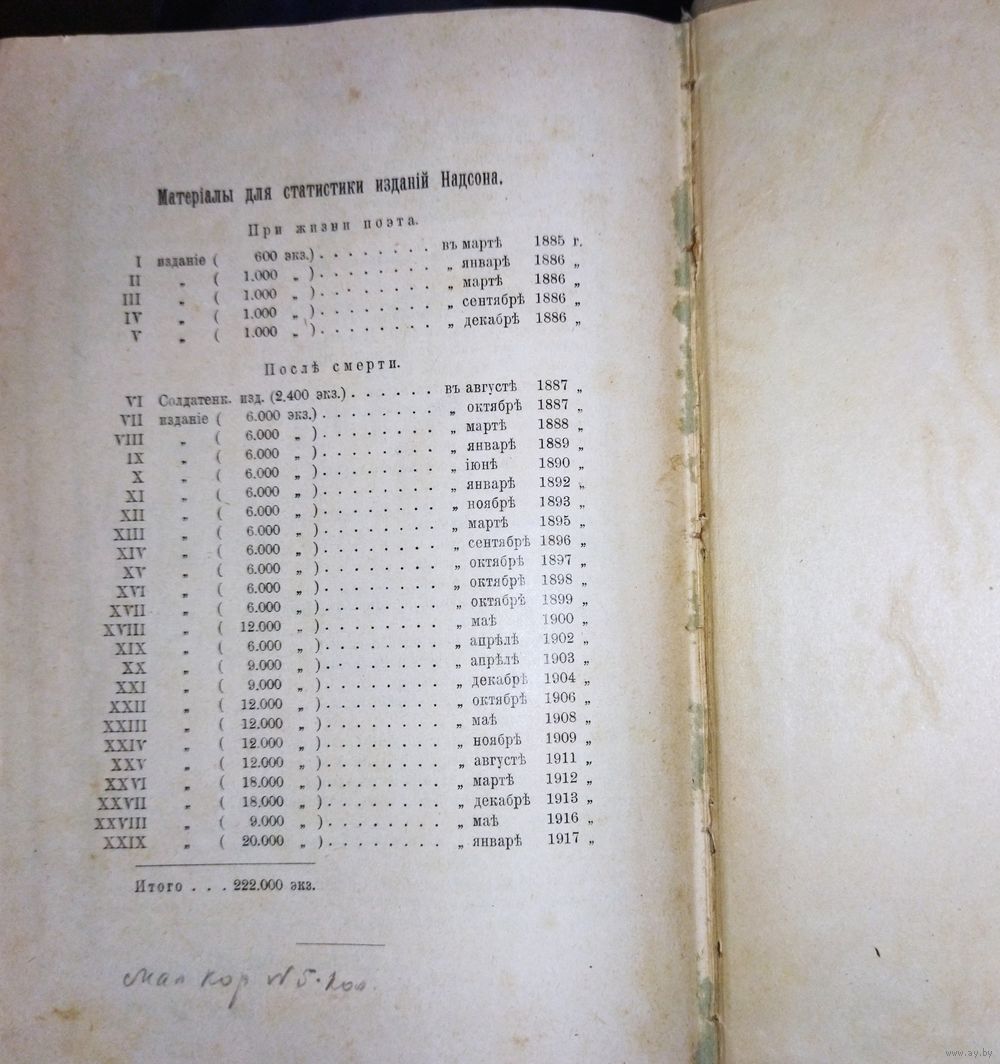 Матеріалы для статистики изданій Надсона.
При жизни поэта.
I изданіе ( 600 экз.) . . . . . . . . въ мартѣ 1885 г.
II „ ( 1.000 „ ) . . . . . . . . „ январѣ 1886 „
III „ ( 1.000 „ ) . . . . . . . . „ мартѣ 1886 „
IV „ ( 1.000 „ ) . . . . . . . . „ сентябрѣ 1886 „
V „ ( 1.000 „ ) . . . . . . . . „ декабрѣ 1886 „
Послѣ смерти.
VI Солдатенк. изд. (2.400 экз.) . . . . . . въ августѣ 1887 „
VII изданіе ( 6.000 экз.) . . . . . . . . „ октябрѣ 1887 „
VIII „ ( 6.000 „ ) . . . . . . . . „ мартѣ 1888 „
IX „ ( 6.000 „ ) . . . . . . . . „ январѣ 1889 „
X „ ( 6.000 „ ) . . . . . . . . „ іюнѣ 1890 „
XI „ ( 6.000 „ ) . . . . . . . . „ январѣ 1892 „
XII „ ( 6.000 „ ) . . . . . . . . „ ноябрѣ 1893 „
XIII „ ( 6.000 „ ) . . . . . . . . „ мартѣ 1895 „
XIV „ ( 6.000 „ ) . . . . . . . . „ сентябрѣ 1896 „
XV „ ( 6.000 „ ) . . . . . . . . „ октябрѣ 1897 „
XVI „ ( 6.000 „ ) . . . . . . . . „ октябрѣ 1898 „
XVII „ ( 6.000 „ ) . . . . . . . . „ октябрѣ 1899 „
XVIII „ ( 12.000 „ ) . . . . . . . . „ маѣ 1900 „
XIX „ ( 6.000 „ ) . . . . . . . . „ апрѣлѣ 1902 „
XX „ ( 9.000 „ ) . . . . . . . . „ апрѣлѣ 1903 „
XXI „ ( 9.000 „ ) . . . . . . . . „ декабрѣ 1904 „
XXII „ ( 12.000 „ ) . . . . . . . . „ октябрѣ 1906 „
XXIII „ ( 12.000 „ ) . . . . . . . . „ маѣ 1908 „
XXIV „ ( 12.000 „ ) . . . . . . . . „ ноябрѣ 1909 „
XXV „ ( 12.000 „ ) . . . . . . . . „ августѣ 1911 „
XXVI „ ( 18.000 „ ) . . . . . . . . „ мартѣ 1912 „
XXVII „ ( 18.000 „ ) . . . . . . . . „ декабрѣ 1913 „
XXVIII „ ( 9.000 „ ) . . . . . . . . „ маѣ 1916 „
XXIX „ ( 20.000 „ ) . . . . . . . . „ январѣ 1917 „
Итого . . . 222.000 экз.
кор № 5
www.ay.by